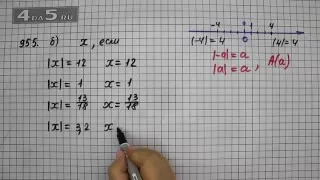 4DA5.RU
955. б) x, если
|x| = 12 x = 12
|x| = 1 x = 1
|x| = 13/18 x = 13/18
|x| = 3,2 x
-4 0 1 4
|-4| = 4 0 |4| = 4
|-a| = a
|a| = a , A(a)